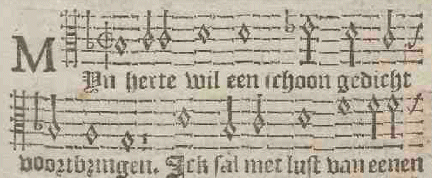 MYn herte wil een schoon gedicht
voortbringen. Ick sal met lust van eenen